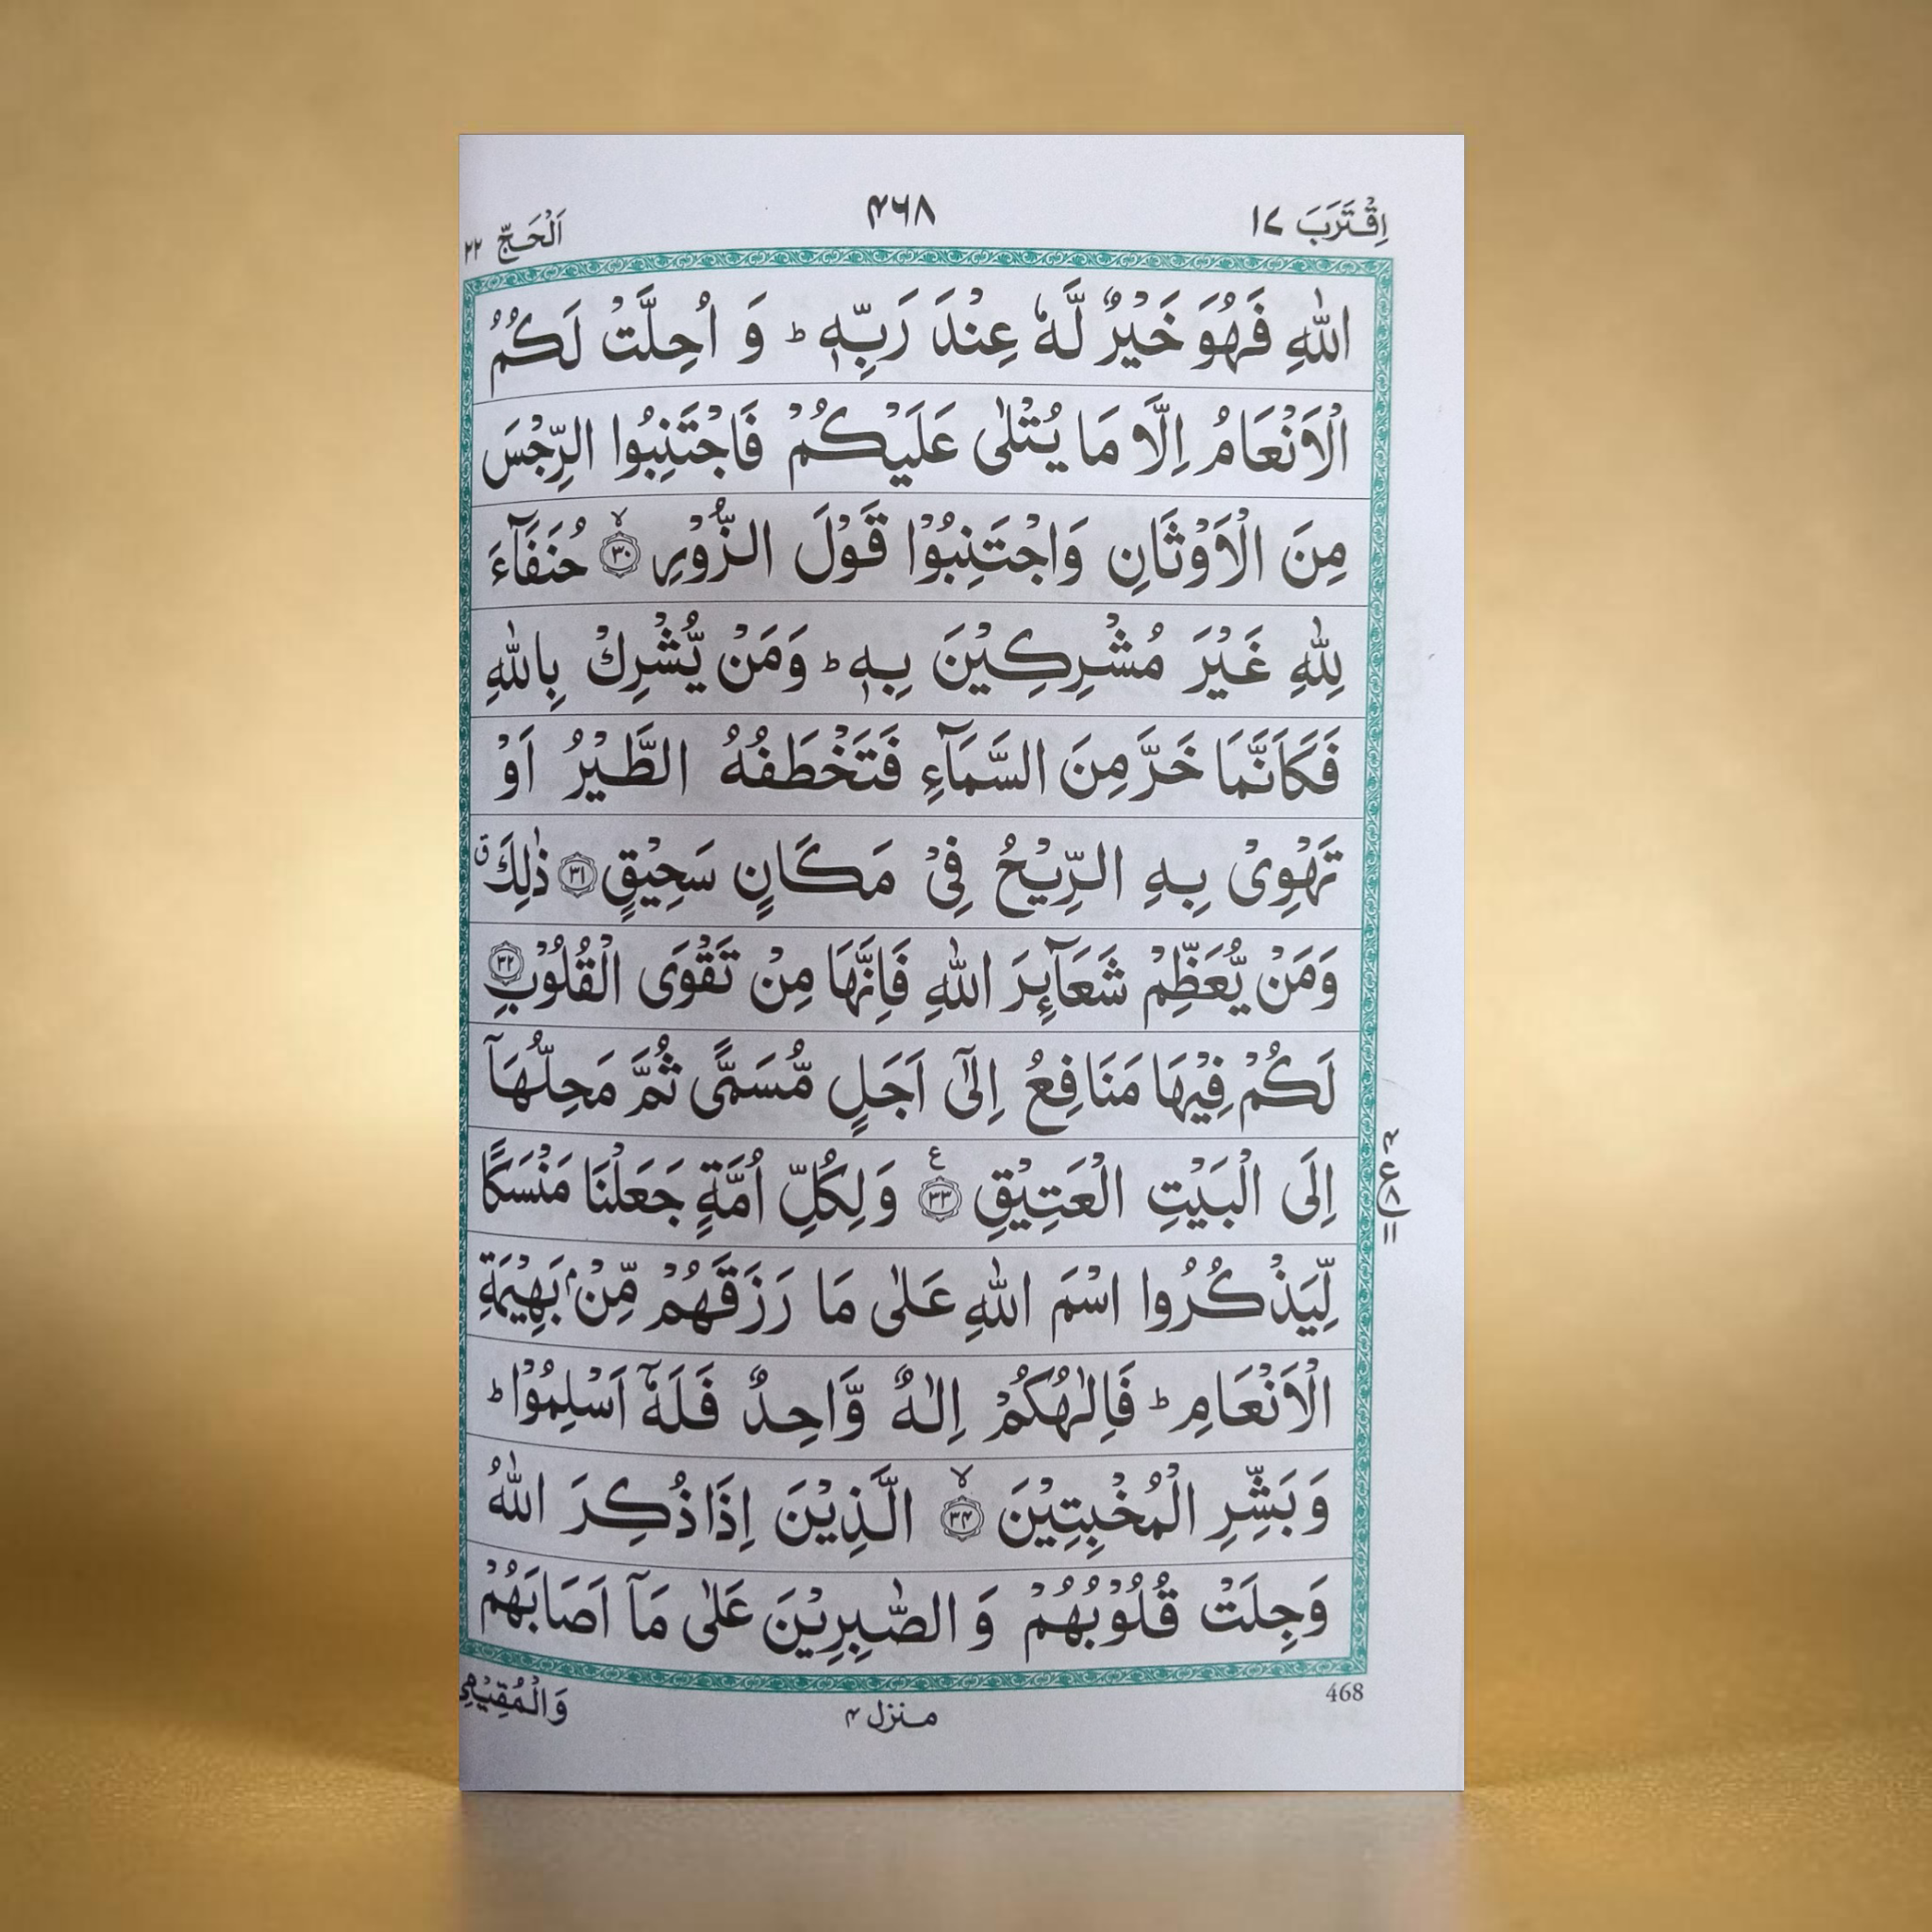 اِقْتَرَبَ ١٧
٤٦٨
اَلْحَجّ ٢٢
اللّٰهِ فَهُوَ خَيْرٌ لَّهٗ عِنْدَ رَبِّهٖ ؕ وَ اُحِلَّتْ لَكُمُ
الْاَنْعَامُ اِلَّا مَا يُتْلٰى عَلَيْكُمْ فَاجْتَنِبُوا الرِّجْسَ
مِنَ الْاَوْثَانِ وَاجْتَنِبُوْا قَوْلَ الزُّوْرِ ۙ‏﴿٣٠﴾ حُنَفَآءَ
لِلّٰهِ غَيْرَ مُشْرِكِيْنَ بِهٖ ؕ وَمَنْ يُّشْرِكْ بِاللّٰهِ
فَكَاَنَّمَا خَرَّ مِنَ السَّمَآءِ فَتَخْطَفُهُ الطَّيْرُ اَوْ
تَهْوِىْ بِهِ الرِّيْحُ فِىْ مَكَانٍ سَحِيْقٍ ﴿٣١﴾ ذٰلِكَ ق
وَمَنْ يُّعَظِّمْ شَعَآئِرَ اللّٰهِ فَاِنَّهَا مِنْ تَقْوَى الْقُلُوْبِ ﴿٣٢﴾
لَكُمْ فِيْهَا مَنَافِعُ اِلٰٓى اَجَلٍ مُّسَمًّى ثُمَّ مَحِلُّهَاۤ
اِلَى الْبَيْتِ الْعَتِيْقِ ﴿٣٣﴾ ع وَلِكُلِّ اُمَّةٍ جَعَلْنَا مَنْسَكًا
لِّيَذْكُرُوا اسْمَ اللّٰهِ عَلٰى مَا رَزَقَهُمْ مِّنْۢ بَهِيْمَةِ
الْاَنْعَامِ ؕ فَاِلٰهُكُمْ اِلٰهٌ وَّاحِدٌ فَلَهٗۤ اَسْلِمُوْا ؕ
وَبَشِّرِ الْمُخْبِتِيْنَ ۙ‏﴿٣٤﴾ الَّذِيْنَ اِذَا ذُكِرَ اللّٰهُ
وَجِلَتْ قُلُوْبُهُمْ وَ الصّٰبِرِيْنَ عَلٰى مَاۤ اَصَابَهُمْ
468
منزل ٤